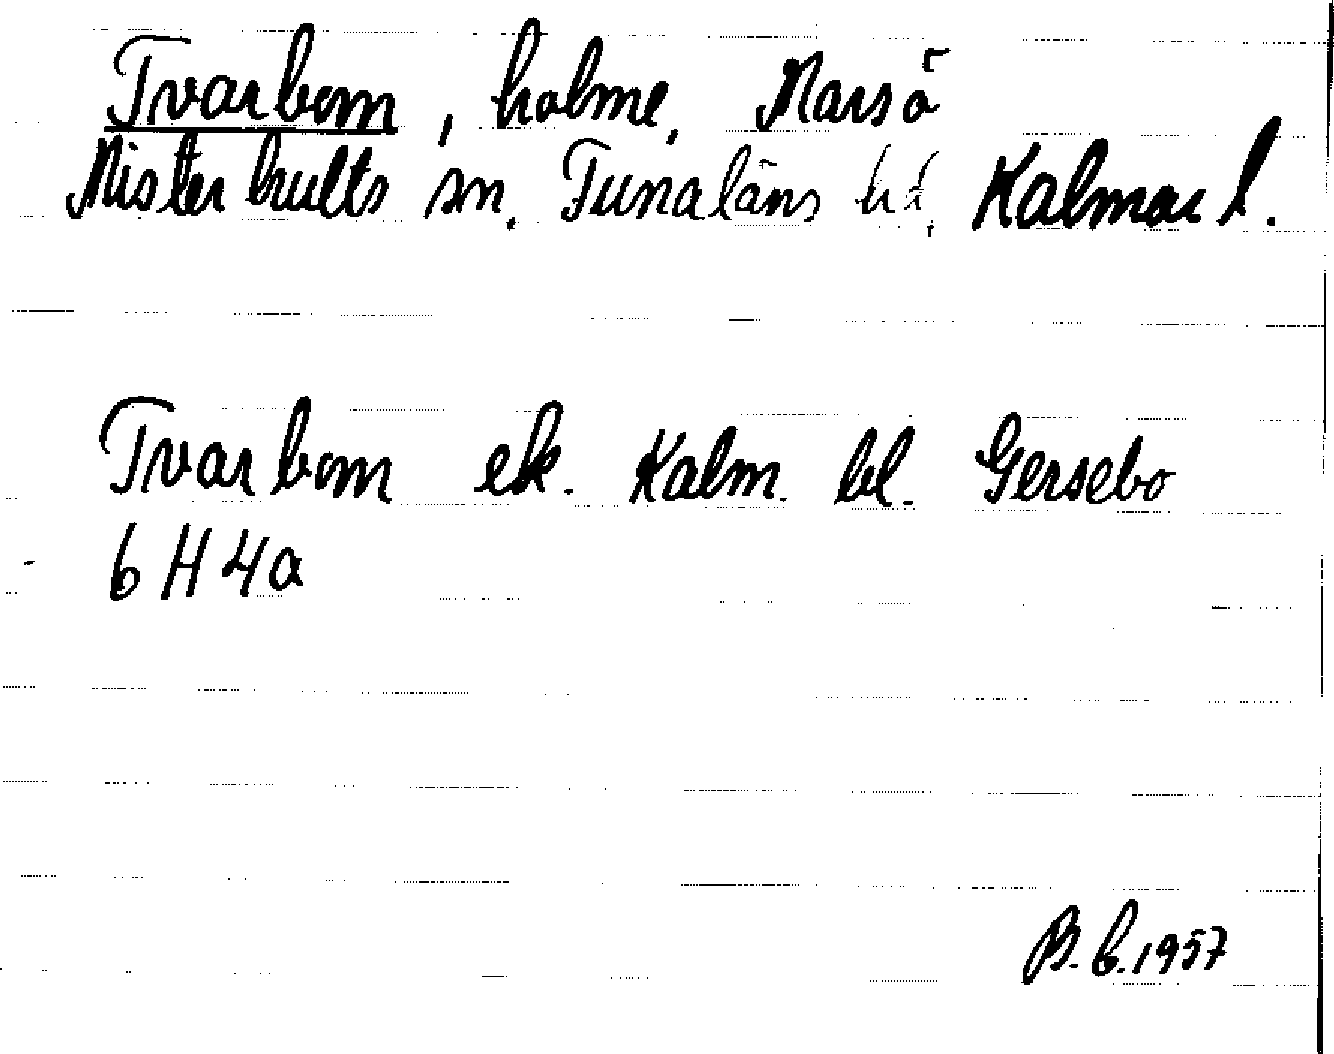 Tvarbom, holme, Marsö
Misterhults sn. Tunaläns hd, Kalmar l.
Tvarbom ek. Kalm. bl. Gersebo
6H4a
B.C.1957